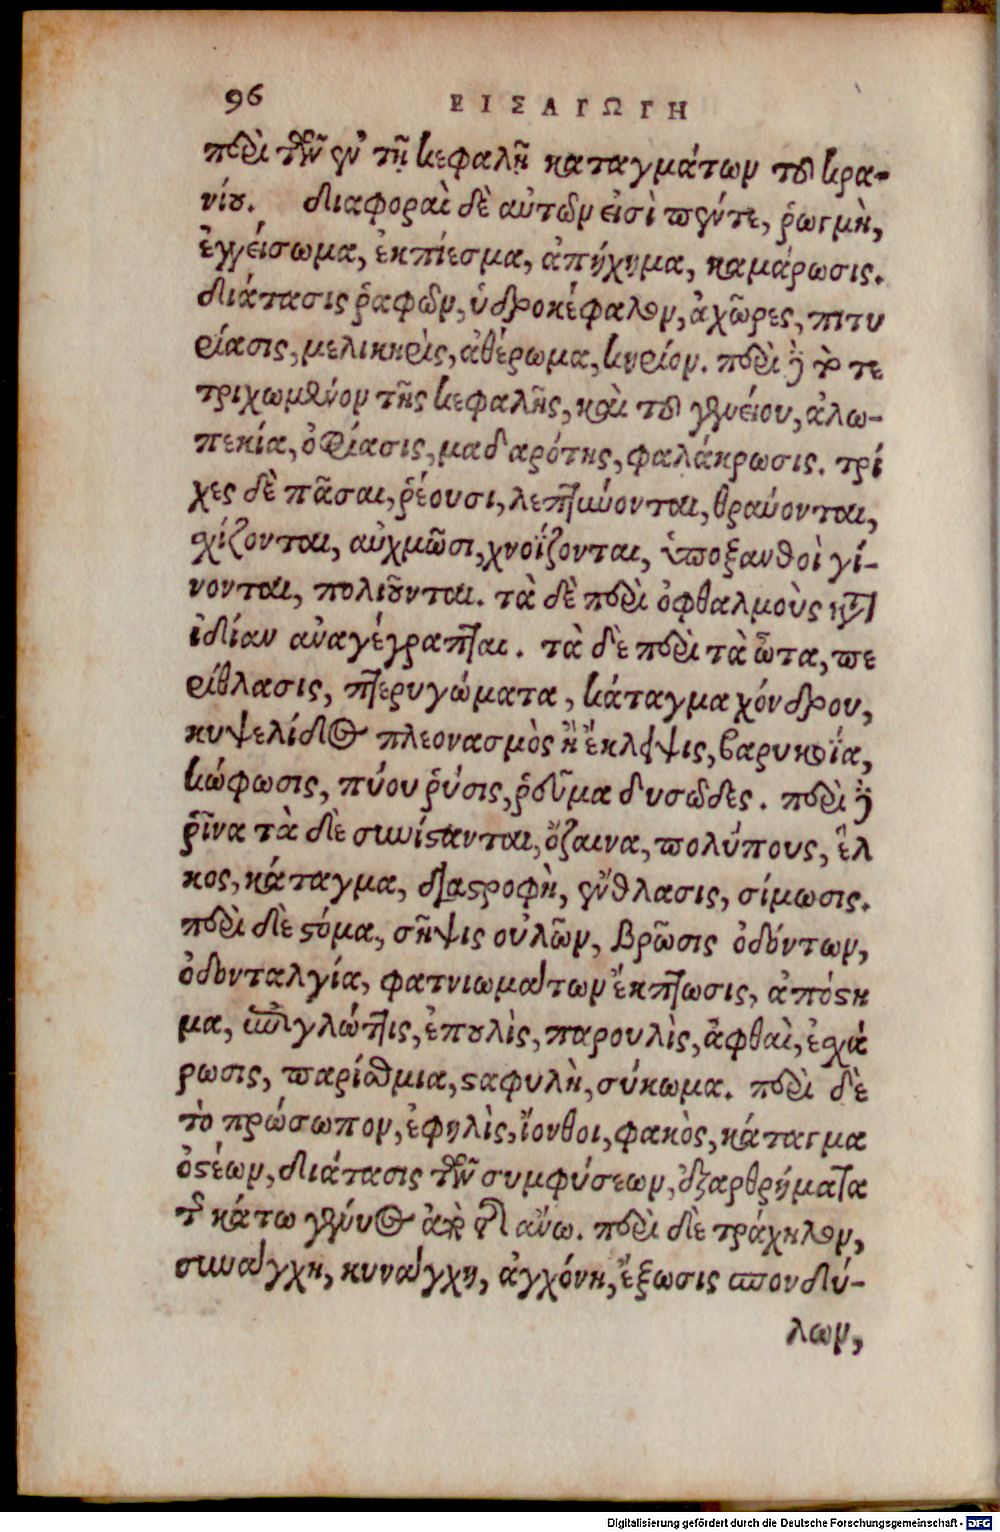 96 ΕΙΣΑΓΩΓΗ
περὶ τῶν ἐν τῇ κεφαλῇ καταγμάτων τοῦ κρα-
νίου. διαφοραὶ δὲ αὐτῶν εἰσὶ πέντε, ῥωγμὴ,
ἐγγείσωμα, ἐκπίεσμα, ἀπήχημα, καμάρωσις.
διάτασις ῥαφῶν, ὑδροκέφαλον, ἀχῶρες, πιτυ
ρίασις, μελικηρὶς, ἀθέρωμα, κηρίον. περὶ δὲ τὸ τε
τριχωμένον τῆς κεφαλῆς, καὶ τοῦ γενείου, ἀλω-
πεκία, ὀφίασις, μαδαρότης, φαλάκρωσις. τρί
χες δὲ πᾶσαι, ῥέουσι, λεπτύνονται, θραύονται,
σχίζονται, αὐχμῶσι, χνοΐζονται, ὑποξανθοὶ γί-
νονται, πολιοῦνται. τὰ δὲ περὶ ὀφθαλμοὺς κατ'
ἰδίαν ἀναγέγραπται. τὰ δὲ περὶ τὰ ὦτα, πε
ρίθλασις, πτερυγώματα, κάταγμα χόνδρου,
κυψελίδος πλεονασμὸς ἢ ἔκλειψις, βαρυκοΐα,
κώφωσις, πύου ῥύσις, ῥεῦμα δυσῶδες. περὶ δὲ
ῥῖνα τὰ δὲ συνίστανται, ὄζαινα, πολύπους, ἕλ
κος, κάταγμα, διαστροφὴ, ἔνθλασις, σίμωσις.
περὶ δὲ στόμα, σῆψις οὐλῶν, βρῶσις ὀδόντων,
ὀδονταλγία, φατνιωμάτων ἔκπτωσις, ἀπόστη
μα, ὑπογλωττὶς, ἐπουλὶς, παρουλὶς, ἄφθαὶ, ἐσχά
ρωσις, παρίσθμια, σταφυλὴ, σύκωμα. περὶ δὲ
τὸ πρώσωπον, ἐφηλὶς, ἴονθοι, φακὸς, κάταγμα
ὀστέων, διάτασις τῶν συμφύσεων, ἐξαρθρήματα
τῆς κάτω γένυος ἀπὸ τῆς ἄνω. περὶ δὲ τράχηλον,
συνάγχη, κυνάγχη, ἀγχόνη, ἔξωσις σπονδύ-
λων,
Digitalisierung gefördert durch die Deutsche Forschungsgemeinschaft - DFG